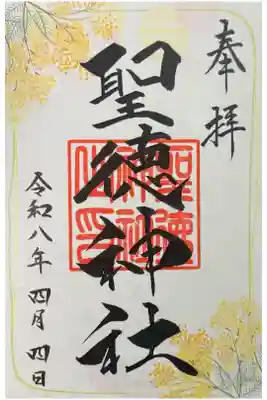 奉拝
聖徳神社
令和八年 四月 四日